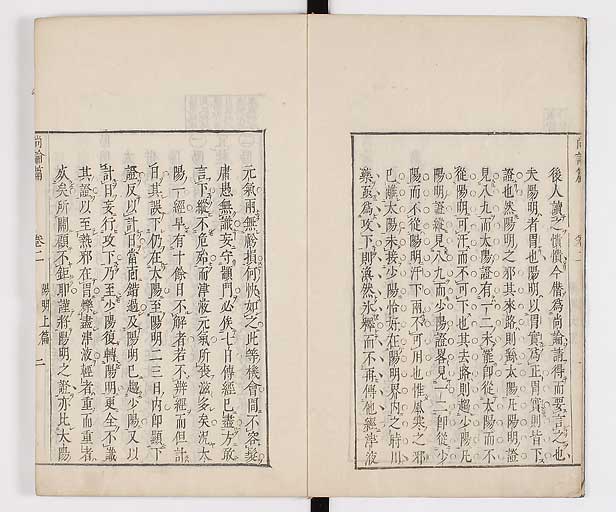 尚論篇
後人讀之憒憒今僭為尚論請得而要言之也
夫陽明者胃也陽明以胃實為正胃實則皆下
證也然陽明之邪其來路則繇太陽凡陽明證
見八九而太陽證有一二未罷卽從太陽而不
從陽明可汗而不可下也其去路則趨少陽凡
陽明證縱見八九而少陽證畧見一二卽從少
陽而不從陽明汗下兩不可用也惟風寒之邪
已離太陽未接少陽恰好在陽明界內之時用
藥亟為攻下則渙然氷釋而不再傳他經津液
元氣兩無虧損何快如之此等機會間不容髮
庸愚無識妄守顓門必俟七日傳經已盡方敢
言下縱不危殆而津液元氣所喪滋多矣況太
陽一經早有十餘日不解者若不辨經而但計
日其誤下仍在太陽至陽明二三日內卽顯下
證反以計日當面錯過及陽明已趨少陽又以
計日妄行攻下乃至少陽復轉陽明更全不識
其證以至熱邪在胃爍盡津液輕者重而重者
死矣所關顧不鉅耶謹將陽明之證亦比太陽
尚論篇 卷二 陽明上篇 二